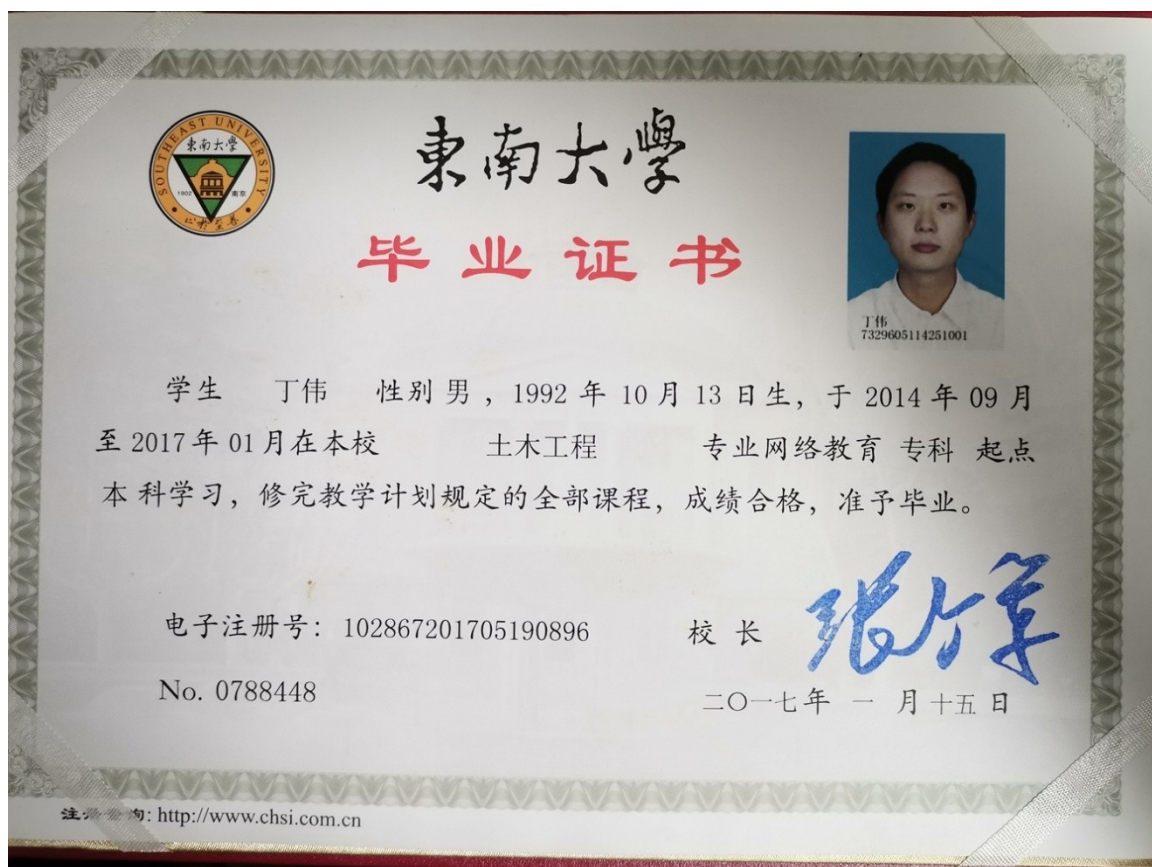 SOUTHEAST UNIVERSITY
東南大學
1902 南京
東南大學
毕业证书
丁伟
7329605114251001
学生 丁伟 性别 男 ,1992 年 10 月 13 日生,于 2014 年 09 月
至 2017 年 01 月在本校 土木工程 专业网络教育 专科 起点
本 科学习,修完教学计划规定的全部课程,成绩合格,准予毕业。
电子注册号:102867201705190896
校 长
No. 0788448
二〇一七年 一 月 十五 日
注 询: http://www.chsi.com.cn